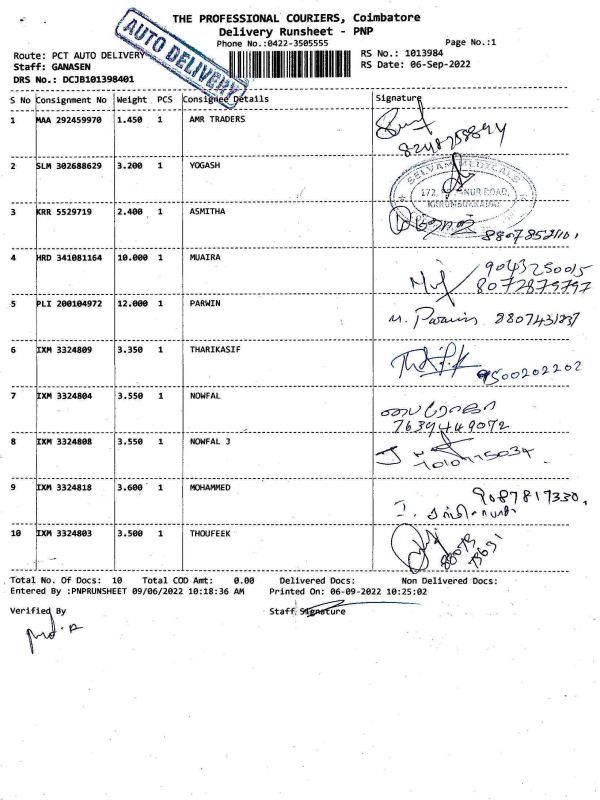 THE PROFESSIONAL COURIERS, Coimbatore
Delivery Runsheet - PNP
Phone No.:0422-3505555
Page No.:1
AUTO DELIVERY
Route: PCT AUTO DELIVERY
RS No.: 1013984
Staff: GANASEN
RS Date: 06-Sep-2022
DRS No.: DCJB101398401
S No Consignment No Weight PCS Consignee Details Signature
1 MAA 292459970 1.450 1 AMR TRADERS
2 SLM 302688629 3.200 1 YOGASH
SELVAM MEDICALS
ROAD,
3 KRR 5529719 2.400 1 ASMITHA
4 HRD 341081164 10.000 1 MUAIRA
9043250015
8072879797
5 PLI 200104972 12.000 1 PARWIN
M. Parwin 8807431837
6 IXM 3324809 3.350 1 THARIKASIF
9500202202
7 IXM 3324804 3.550 1 NOWFAL
7639449072
8 IXM 3324808 3.550 1 NOWFAL J
9 IXM 3324818 3.600 1 MOHAMMED
9087817330,
10 IXM 3324803 3.500 1 THOUFEEK
Total No. Of Docs: 10 Total COD Amt: 0.00 Delivered Docs: Non Delivered Docs:
Entered By :PNPRUNSHEET 09/06/2022 10:18:36 AM Printed On: 06-09-2022 10:25:02
Verified By Staff Signature